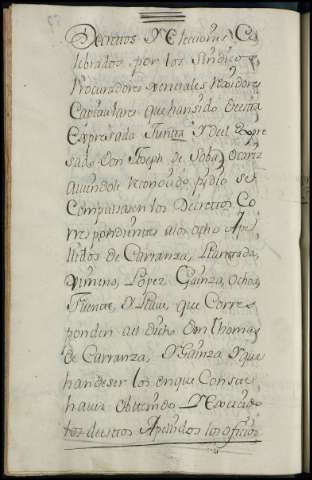 Decretos Y Elecciones Ce
lebrados, por los Sindicos
Procuradores xenerales Rexidores
Capitulares que han sido de esta
Expresada Junta Y del Expre
sado Don Joseph de Soba, Y Cortez
aviendole reconocido pidio se
Compulsasen los Decretos Co
rrespondientes alos ocho Ape
llidos de Carranza, Llaretada,
Ximeno, Lopez, Gainza, Ochoa,
Fuente, Y Llave, que Corres
ponden al dicho Don Thomas
de Carranza, Y Gainza Y que
han de ser los en que Conste
haver obtenido Y Exercido
los dichos Apellidos los oficios